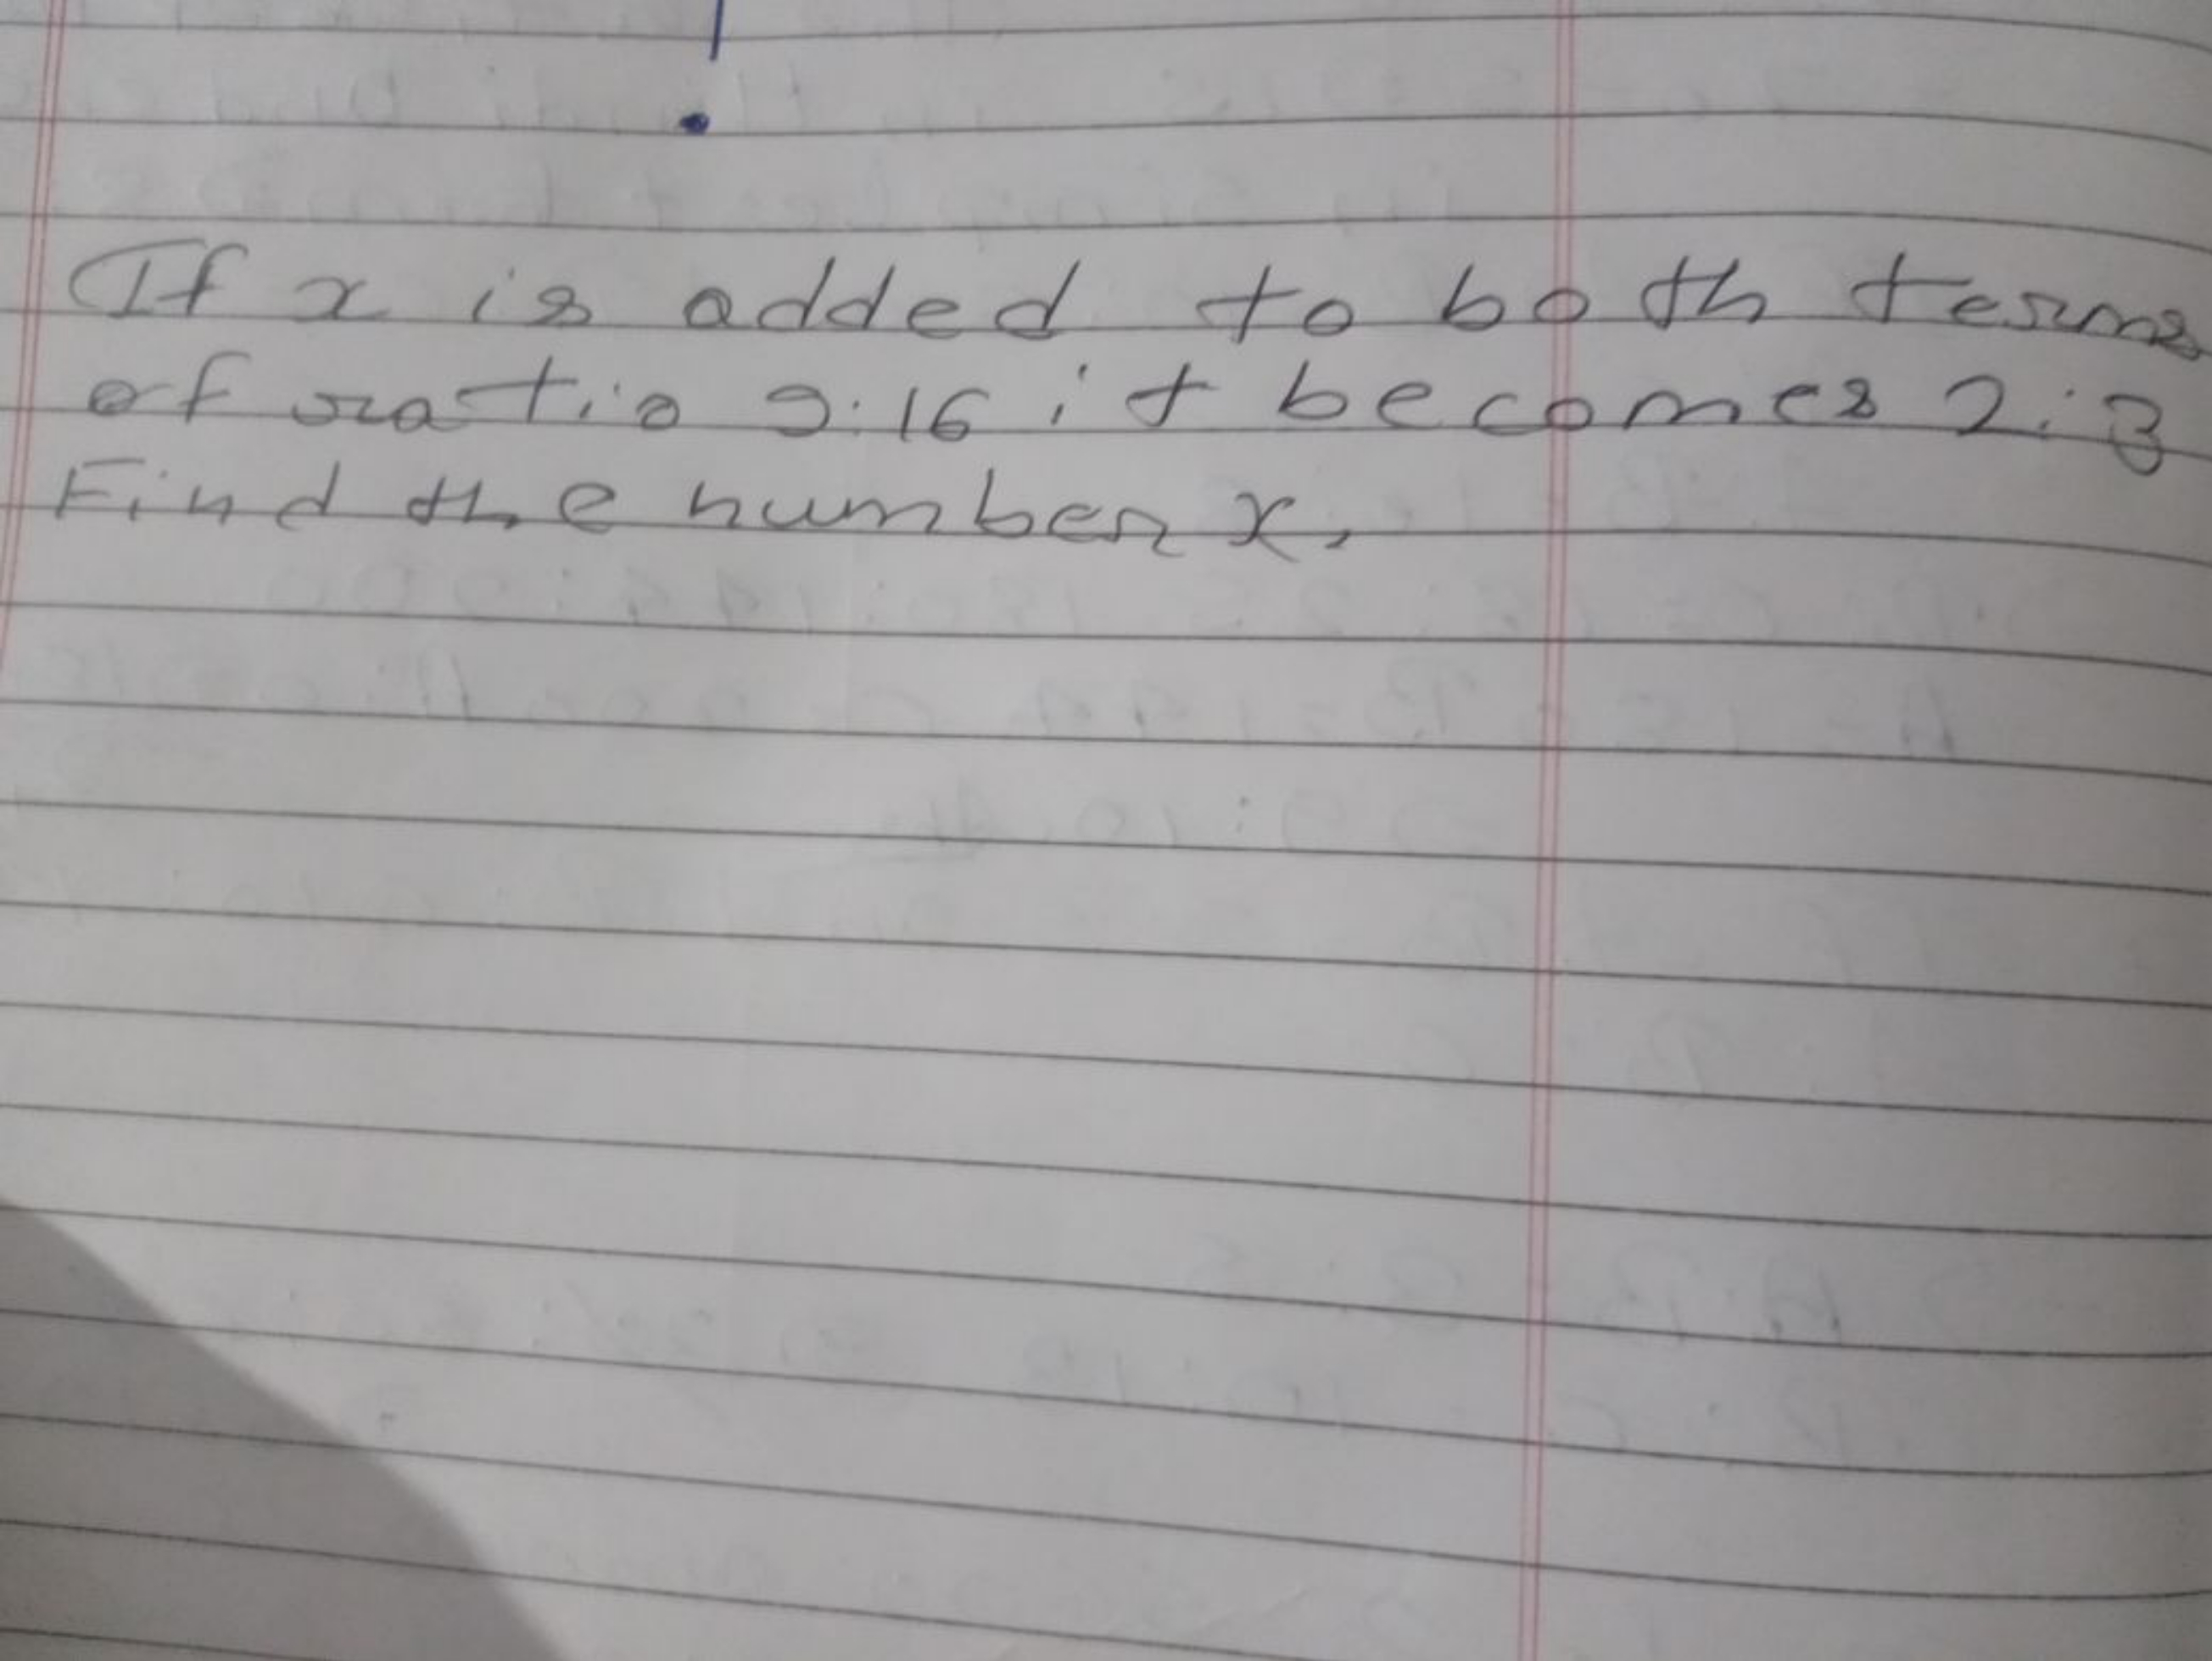 If x is added to both terms
of ratio 9:16 it becomes 2:3
Find the number x.